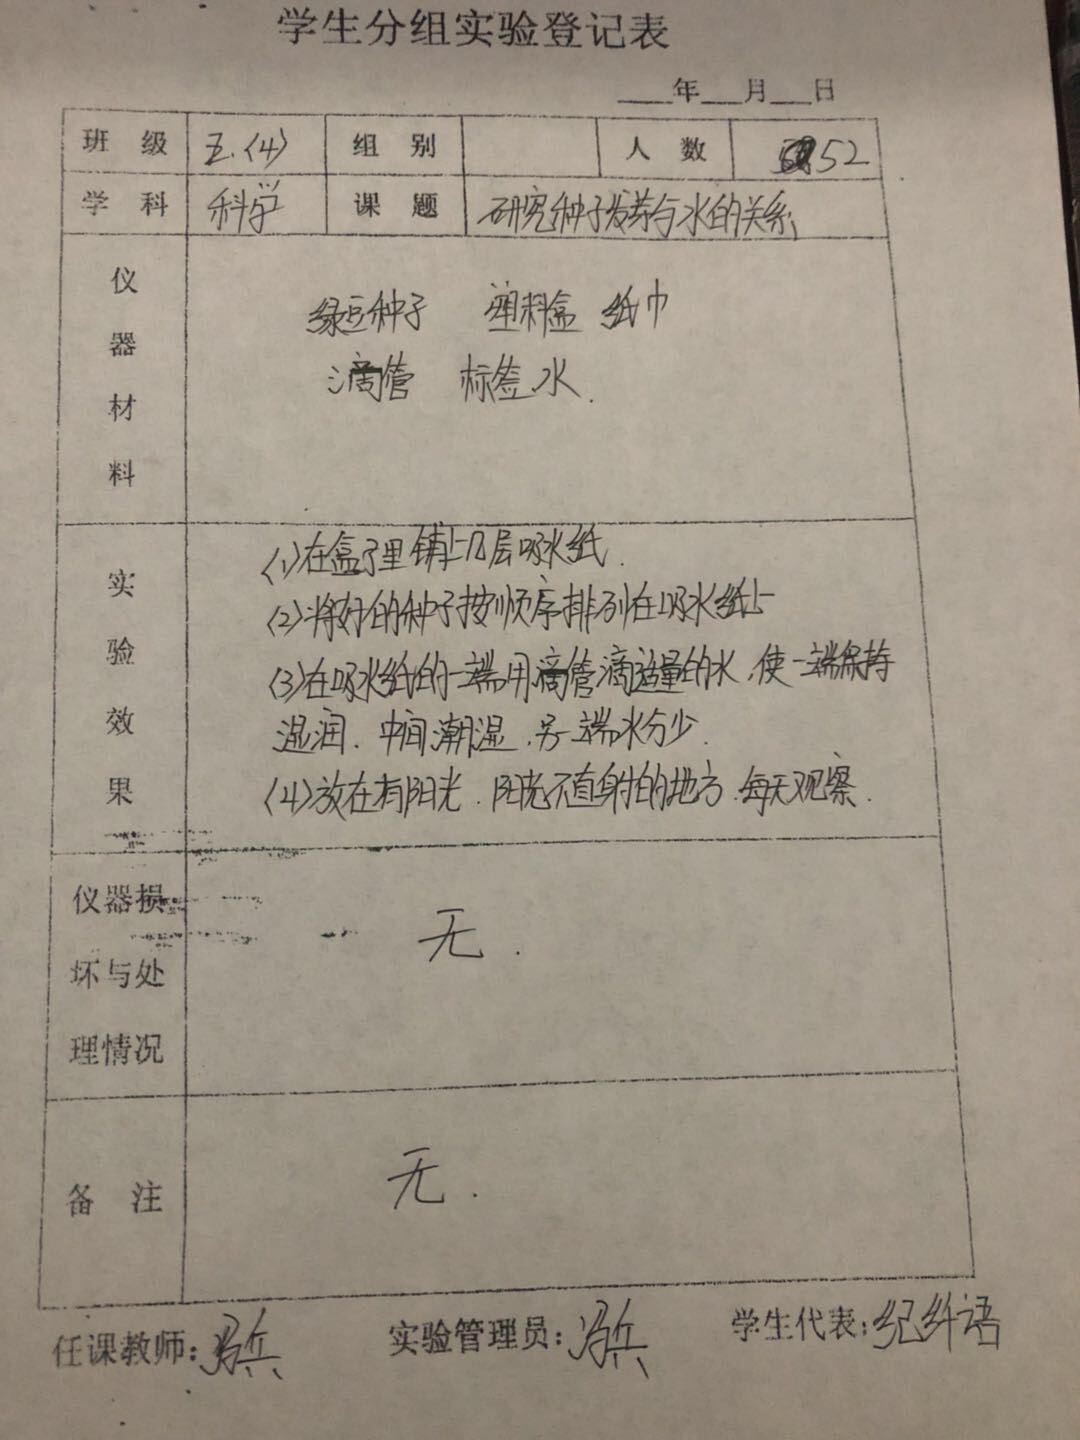 学生分组实验登记表
___年___月___日
班级 五.(4) 组别 人数 52
学科 科学 课题 研究种子发芽与水的关系
仪器材料
绿豆种子 塑料盒 纸巾
滴管 标签 水.
实验效果
(1)在盒子里铺上几层吸水纸.
(2)将好的种子按顺序排列在吸水纸上
(3)在吸水纸的一端用滴管滴适量的水,使一端保持
湿润.中间潮湿,另一端水分少.
(4)放在有阳光.阳光不直射的地方.每天观察.
仪器损坏与处理情况
无.
备注
无.
任课教师:冯兵 实验管理员:冯兵 学生代表:纪纤语